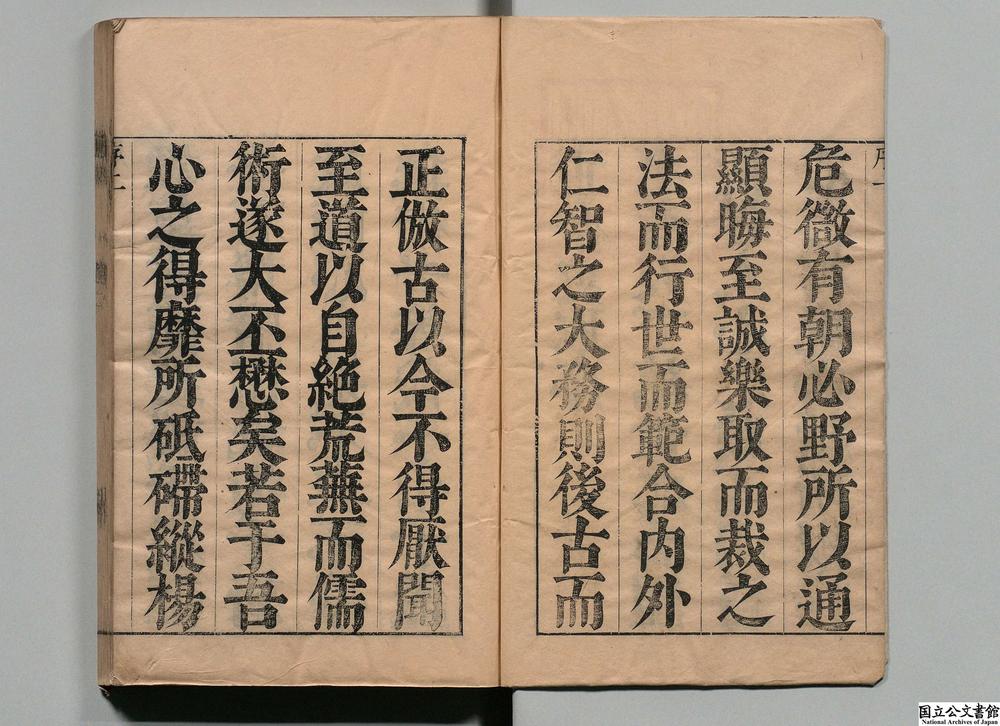 危微有朝必野所以通
顯晦至誠樂取而裁之
法而行世而範合内外
仁智之大務則後古而
正倣古以今不得厭聞
至道以自絶荒蕪而儒
術遂大丕懋矣若于吾
心之得靡所砥礋縱楊
国立公文書館
National Archives of Japan